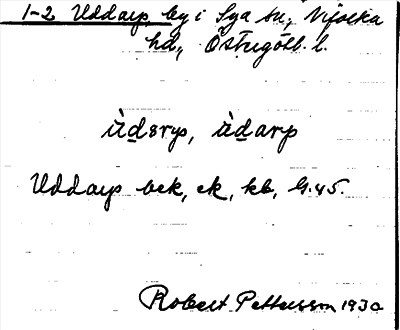 1-2 Uddarp by i Sya sn, Vifolka
hd, Östergötl. l.
ùdɜrp, ùdarp
Uddarp bek, ek, kb, G.45.
Robert Pettersson 1930